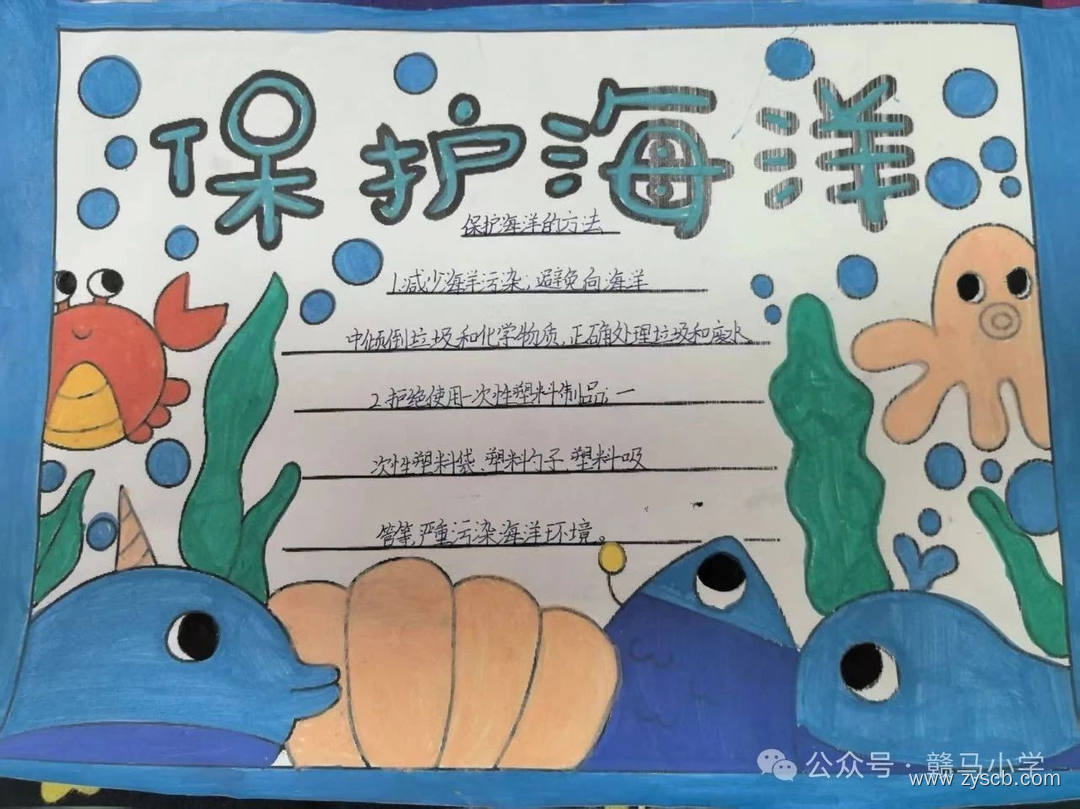 保护海洋
保护海洋的方法
1.减少海洋污染;避免向海洋
中倾倒垃圾和化学物质,正确处理垃圾和废水
2.拒绝使用一次性塑料制品;一
次性塑料袋、塑料勺子、塑料吸
管等,严重污染海洋环境。
公众号·赣马小学
www.zyscb.com